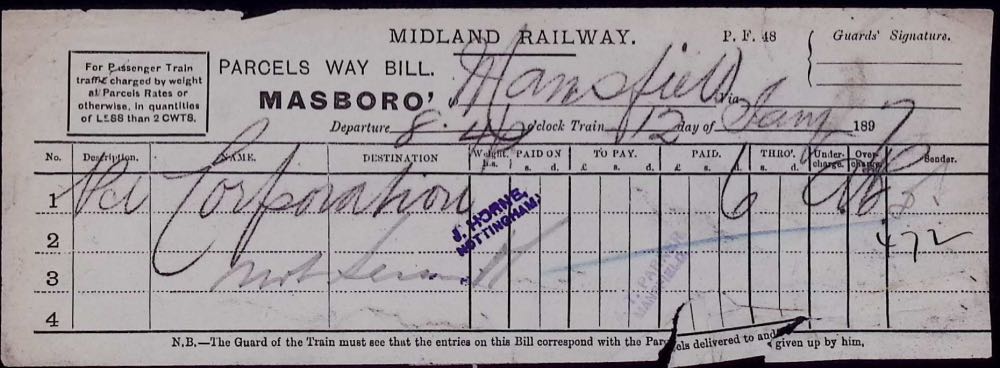 MIDLAND RAILWAY.
P. F. 48
Guards' Signature.
For Passenger Train
traffic charged by weight
at Parcels Rates or
otherwise, in quantities
of LESS than 2 CWTS.
PARCELS WAY BILL.
MASBORO' Mansfield via
Departure 8.40 o'clock Train 12 day of Jany 1897
No. Description. NAME. DESTINATION Weight. lbs. PAID ON s. d. TO PAY. £ s. d. PAID. £ s. d. THRO'. s. d. Under-charge. Over-charge. Sender.
1 Pcl Corporation 6
J. HORNE,
NOTTINGHAM
2 472
3 not
T. PARKER
MANSFIELD
4
N.B.—The Guard of the Train must see that the entries on this Bill correspond with the Parcels delivered to and given up by him.